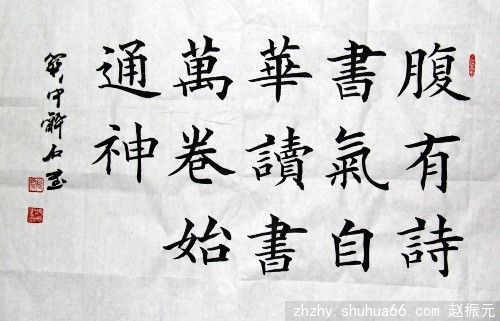 腹有詩
書氣自
華讀書
萬卷始
通神
zhzhy.shuhua66.com 赵振元